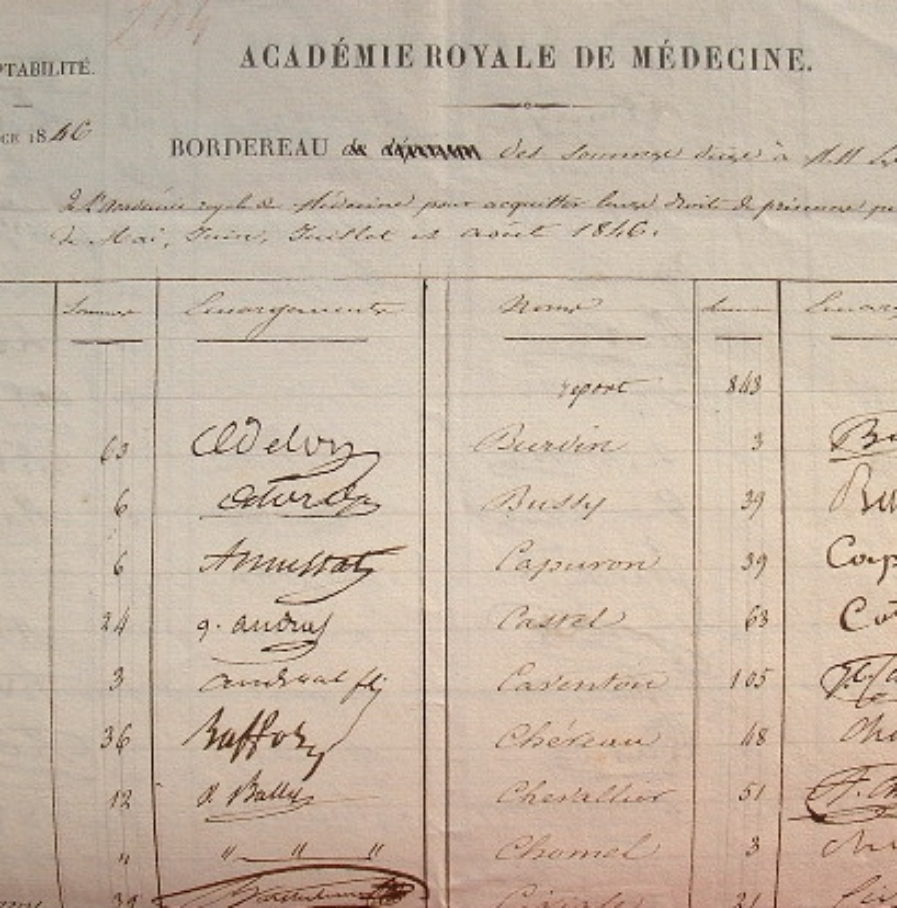 204
ACADÉMIE ROYALE DE MÉDECINE.
PTABILITÉ.
CE 1846
BORDEREAU des sommes dues à MM
de l'Académie royale de Médecine pour acquitter leurs droits de présence
de Mai, Juin, Juillet et août 1846.
Sommes Emargements Noms Sommes Emarg
report 843
63 Adelon Burdin 3 Bu
6 Bussy 39 Bu
6 Amussat Capuron 39 Cap
24 G. andral Castel 63 Ca
3 andral Caventou 105
36 Baffos Chéreau 48 Che
12 V. Bally Chevallier 51
" " " " Chomel 3 Ch
39 Civiale 21 Civ